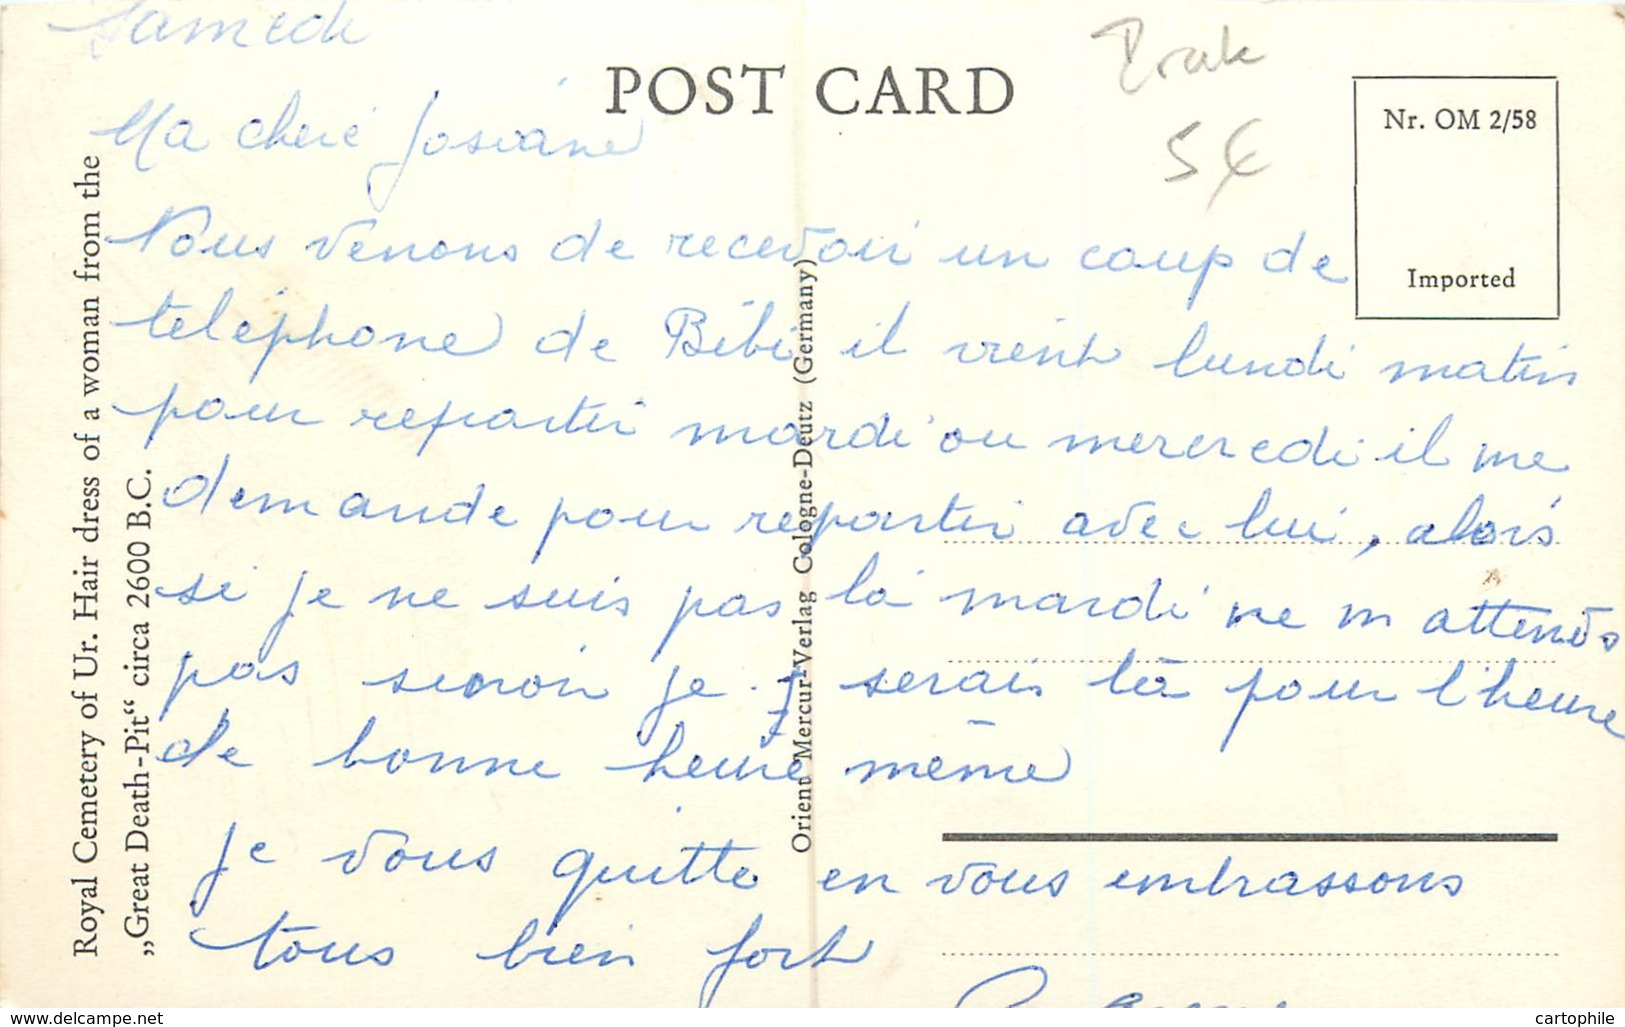 Samedi
POST CARD
Irak
5€
Nr. OM 2/58
Imported
Ma cherie Josiane
Nous venons de recevoir un coup de
telephone de Bébi il vient lundi matin
pour repartir mardi ou mercredi il me
demande pour repartir avec lui, alors
si je ne suis pas là mardi ne m attends
pas sinon je serais là pour l'heure
de bonne heure même
je vous quitte en vous embrassons
tous bien fort
Royal Cemetery of Ur. Hair dress of a woman from the
„Great Death-Pit“ circa 2600 B.C.
Orient Mercur-Verlag Cologne-Deutz (Germany)
www.delcampe.net
cartophile